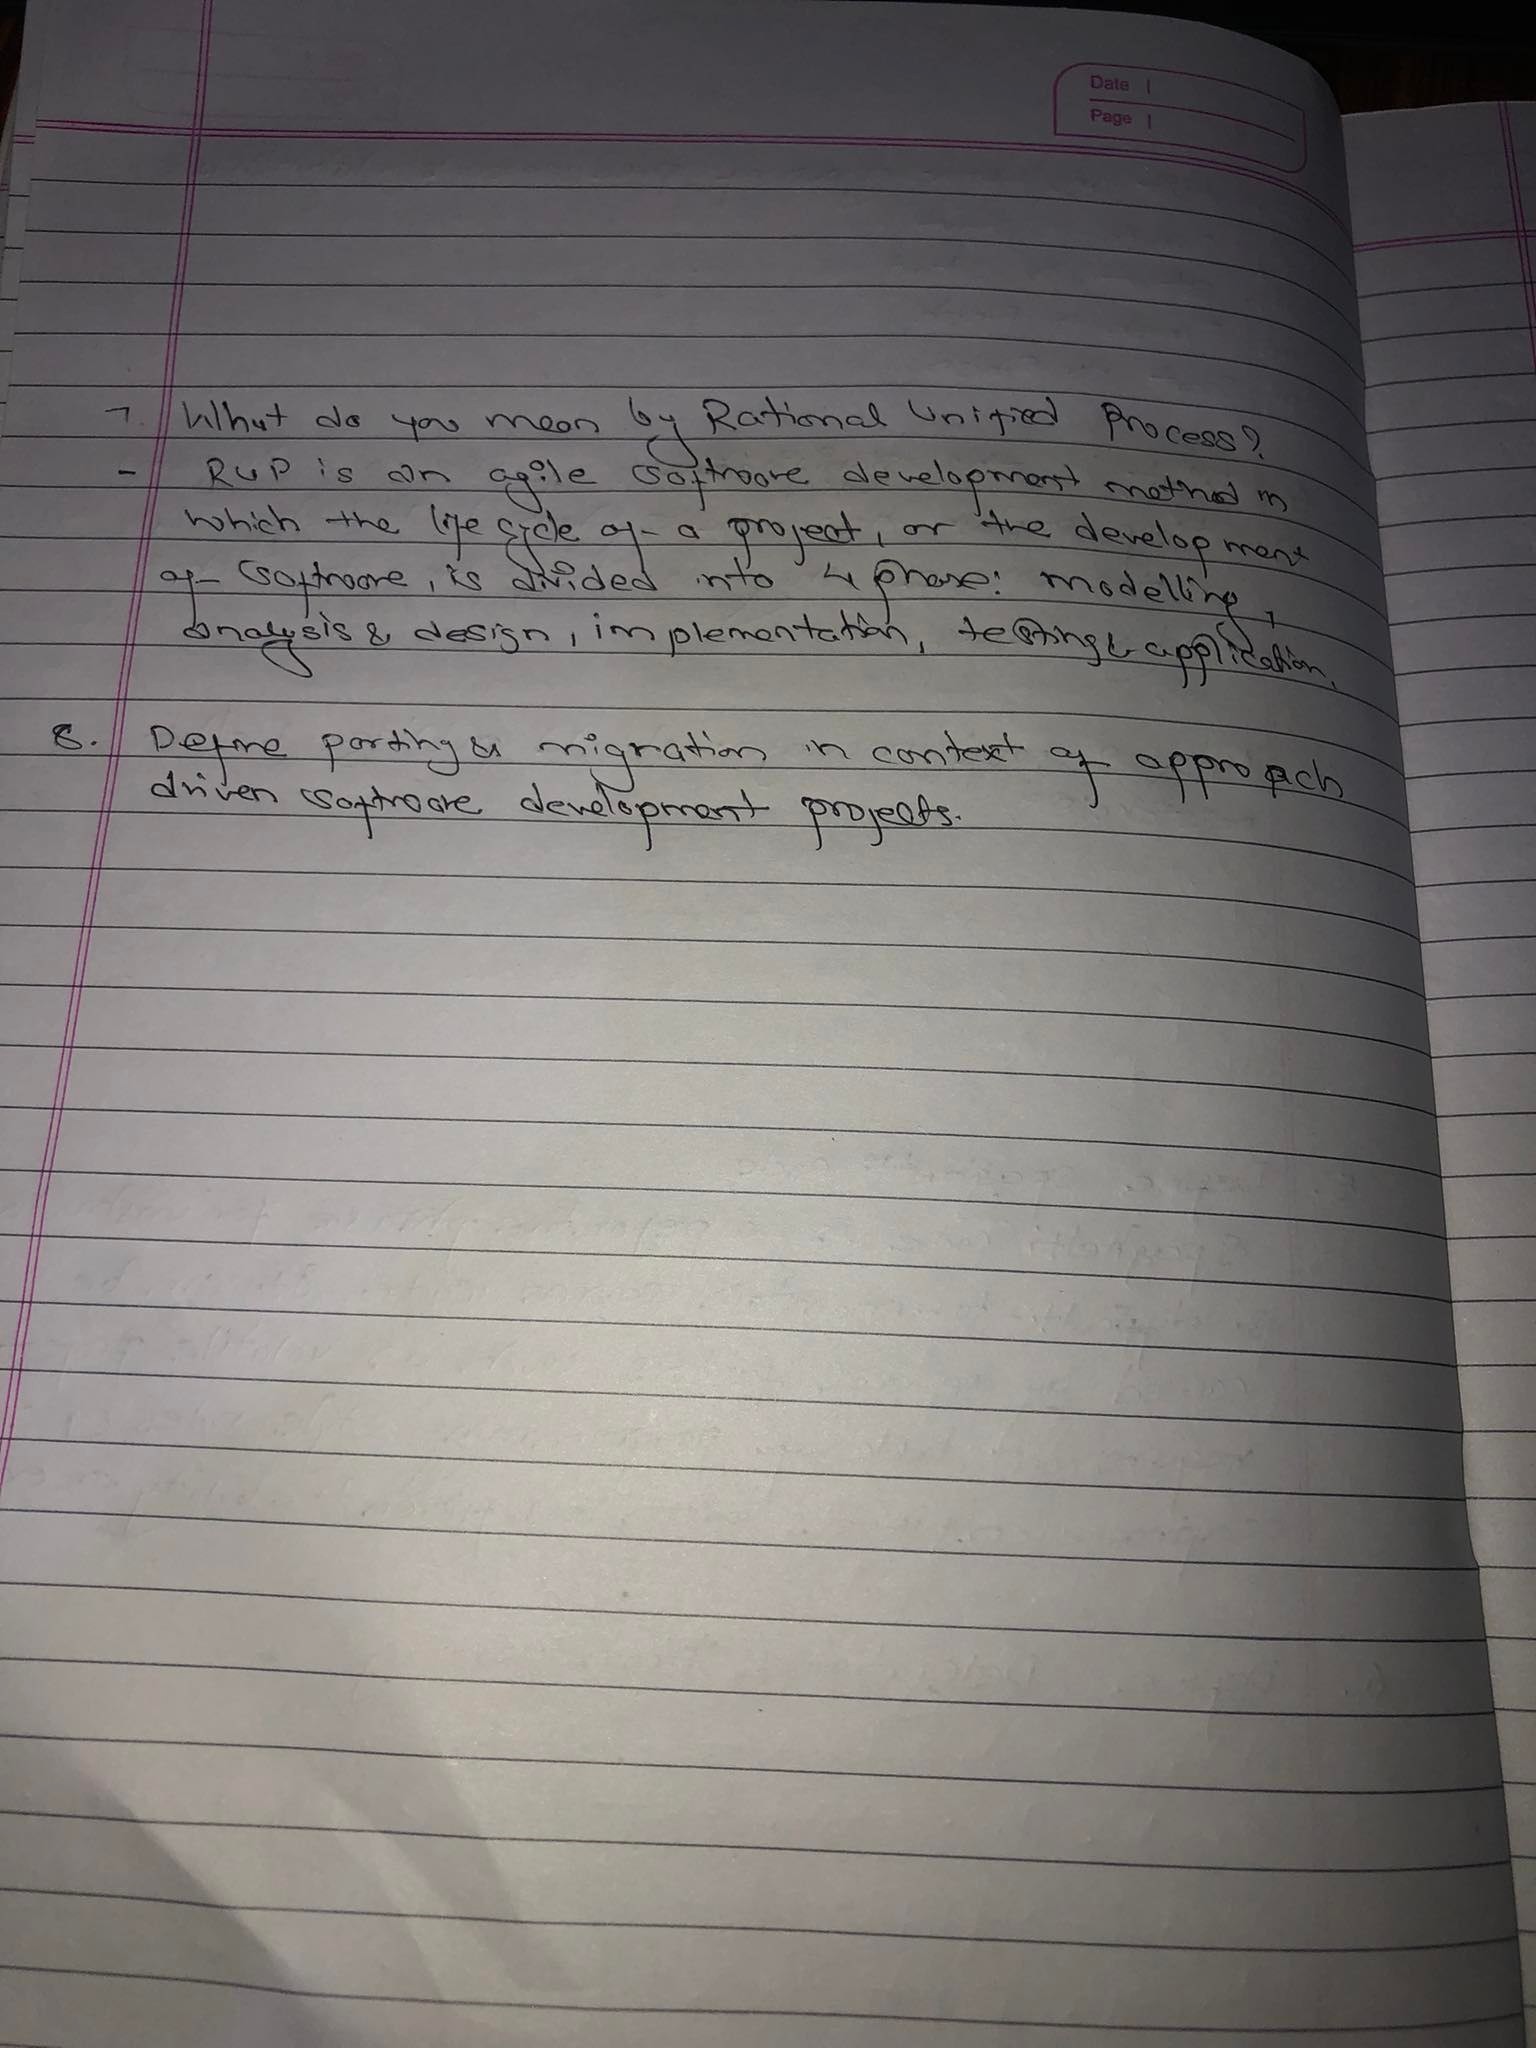 Date
Page
7. What do you mean by Rational Unified Process?
- RUP is an agile software development method in
which the life cycle of a project, or the development
of software, is divided into 4 phase: modelling,
analysis & design, implementation, testing & application.
8. Define porting & migration in context of approach
driven software development projects.